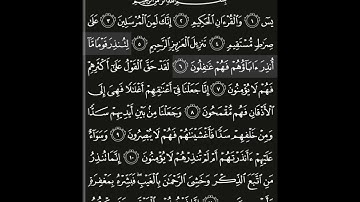 يسٓ ١ وَٱلْقُرْءَانِ ٱلْحَكِيمِ ٢ إِنَّكَ لَمِنَ ٱلْمُرْسَلِينَ ٣ عَلَىٰ
صِرَٰطٍ مُّسْتَقِيمٍ ٤ تَنزِيلَ ٱلْعَزِيزِ ٱلرَّحِيمِ ٥ لِتُنذِرَ قَوْمًا مَّآ
أُنذِرَ ءَابَآؤُهُمْ فَهُمْ غَٰفِلُونَ ٦ لَقَدْ حَقَّ ٱلْقَوْلُ عَلَىٰٓ أَكْثَرِهِمْ
فَهُمْ لَا يُؤْمِنُونَ ٧ إِنَّا جَعَلْنَا فِىٓ أَعْنَٰقِهِمْ أَغْلَٰلًا فَهِىَ إِلَى
ٱلْأَذْقَانِ فَهُم مُّقْمَحُونَ ٨ وَجَعَلْنَا مِنۢ بَيْنِ أَيْدِيهِمْ سَدًّا
وَمِنْ خَلْفِهِمْ سَدًّا فَأَغْشَيْنَٰهُمْ فَهُمْ لَا يُبْصِرُونَ ٩ وَسَوَآءٌ
عَلَيْهِمْ ءَأَنذَرْتَهُمْ أَمْ لَمْ تُنذِرْهُمْ لَا يُؤْمِنُونَ ١٠ إِنَّمَا تُنذِرُ
مَنِ ٱتَّبَعَ ٱلذِّكْرَ وَخَشِىَ ٱلرَّحْمَٰنَ بِٱلْغَيْبِ فَبَشِّرْهُ بِمَغْفِرَةٍ